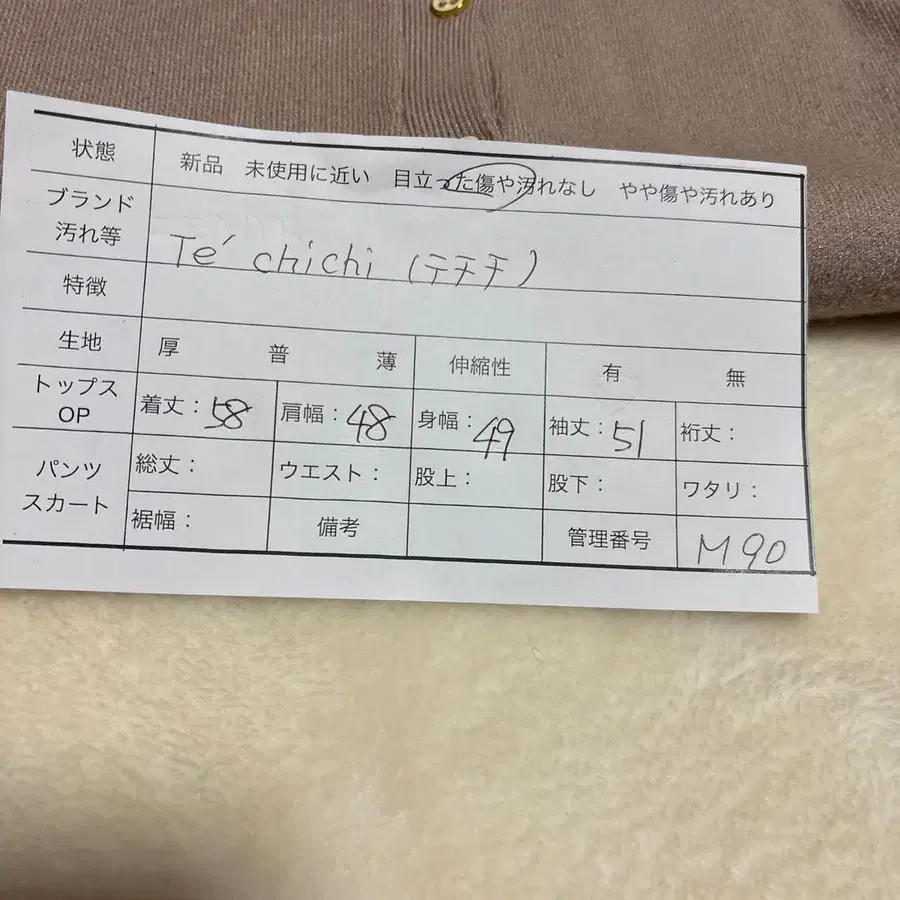 状態 新品 未使用に近い 目立った傷や汚れなし やや傷や汚れあり
ブランド
汚れ等
Te´ chichi (テチチ)
特徴
生地 厚 普 薄 伸縮性 有 無
トップス
OP
着丈：58 肩幅：48 身幅：49 袖丈：51 裄丈：
パンツ
スカート
総丈： ウエスト： 股上： 股下： ワタリ：
裾幅： 備考 管理番号 M90